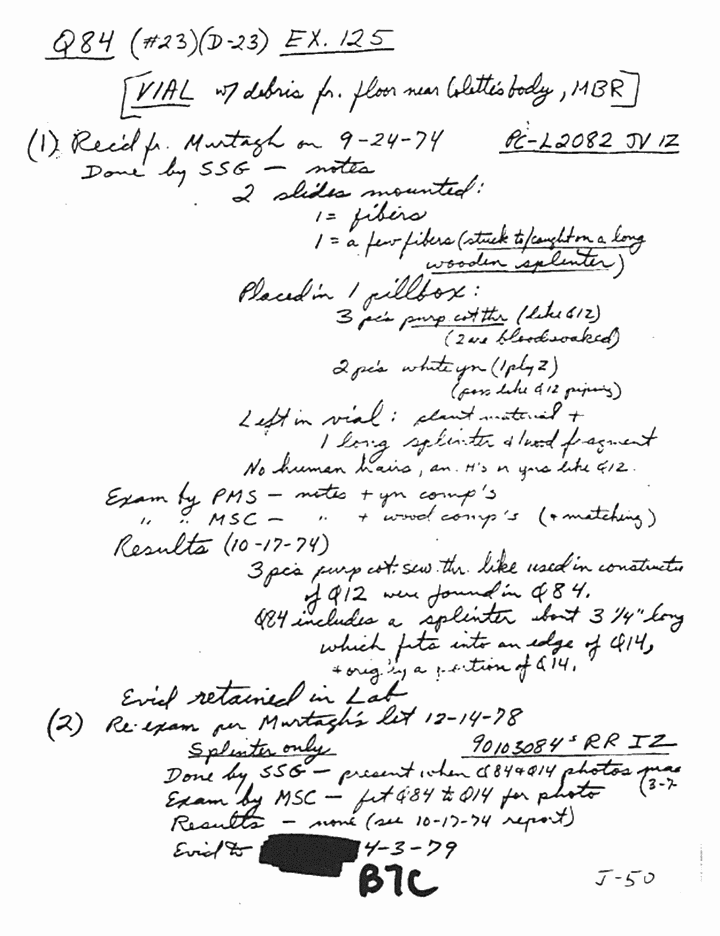 Q84 (#23)(D-23) EX. 125
[VIAL w/ debris fr. floor near Colette's body, MBR]
(1) Rec'd fr. Murtagh on 9-24-74 PC-L2082 JV IZ
Done by SSG — notes
2 slides mounted:
1 = fibers
1 = a few fibers (stuck to/caught on a long
wooden splinter)
Placed in 1 pillbox:
3 pcs purp cot thr (like Q12)
(2 are bloodsoaked)
2 pcs white yn (1 ply Z)
(poss like Q12 piping)
Left in vial: plant material +
1 long splinter & wood fragment
No human hairs, an. H's or yns like Q12.
Exam by PMS — notes + yn comp's
" " MSC — " + wood comp's (+ matching)
Results (10-17-74)
3 pcs purp cot. sew. thr. like used in constructi
of Q12 were found in Q84.
Q84 includes a splinter about 3 1/4" long
which fits into an edge of Q14,
+ orig'ly a portion of Q14.
Evid retained in Lab
(2) Re-exam per Murtagh's let 12-14-78
Splinter only 90103084 S RR IZ
Done by SSG — present when Q84 & Q14 photos mae
Exam by MSC — fit Q84 to Q14 for photo (3-7
Results — none (see 10-17-74 report)
Evid to 4-3-79
B7C
J-50